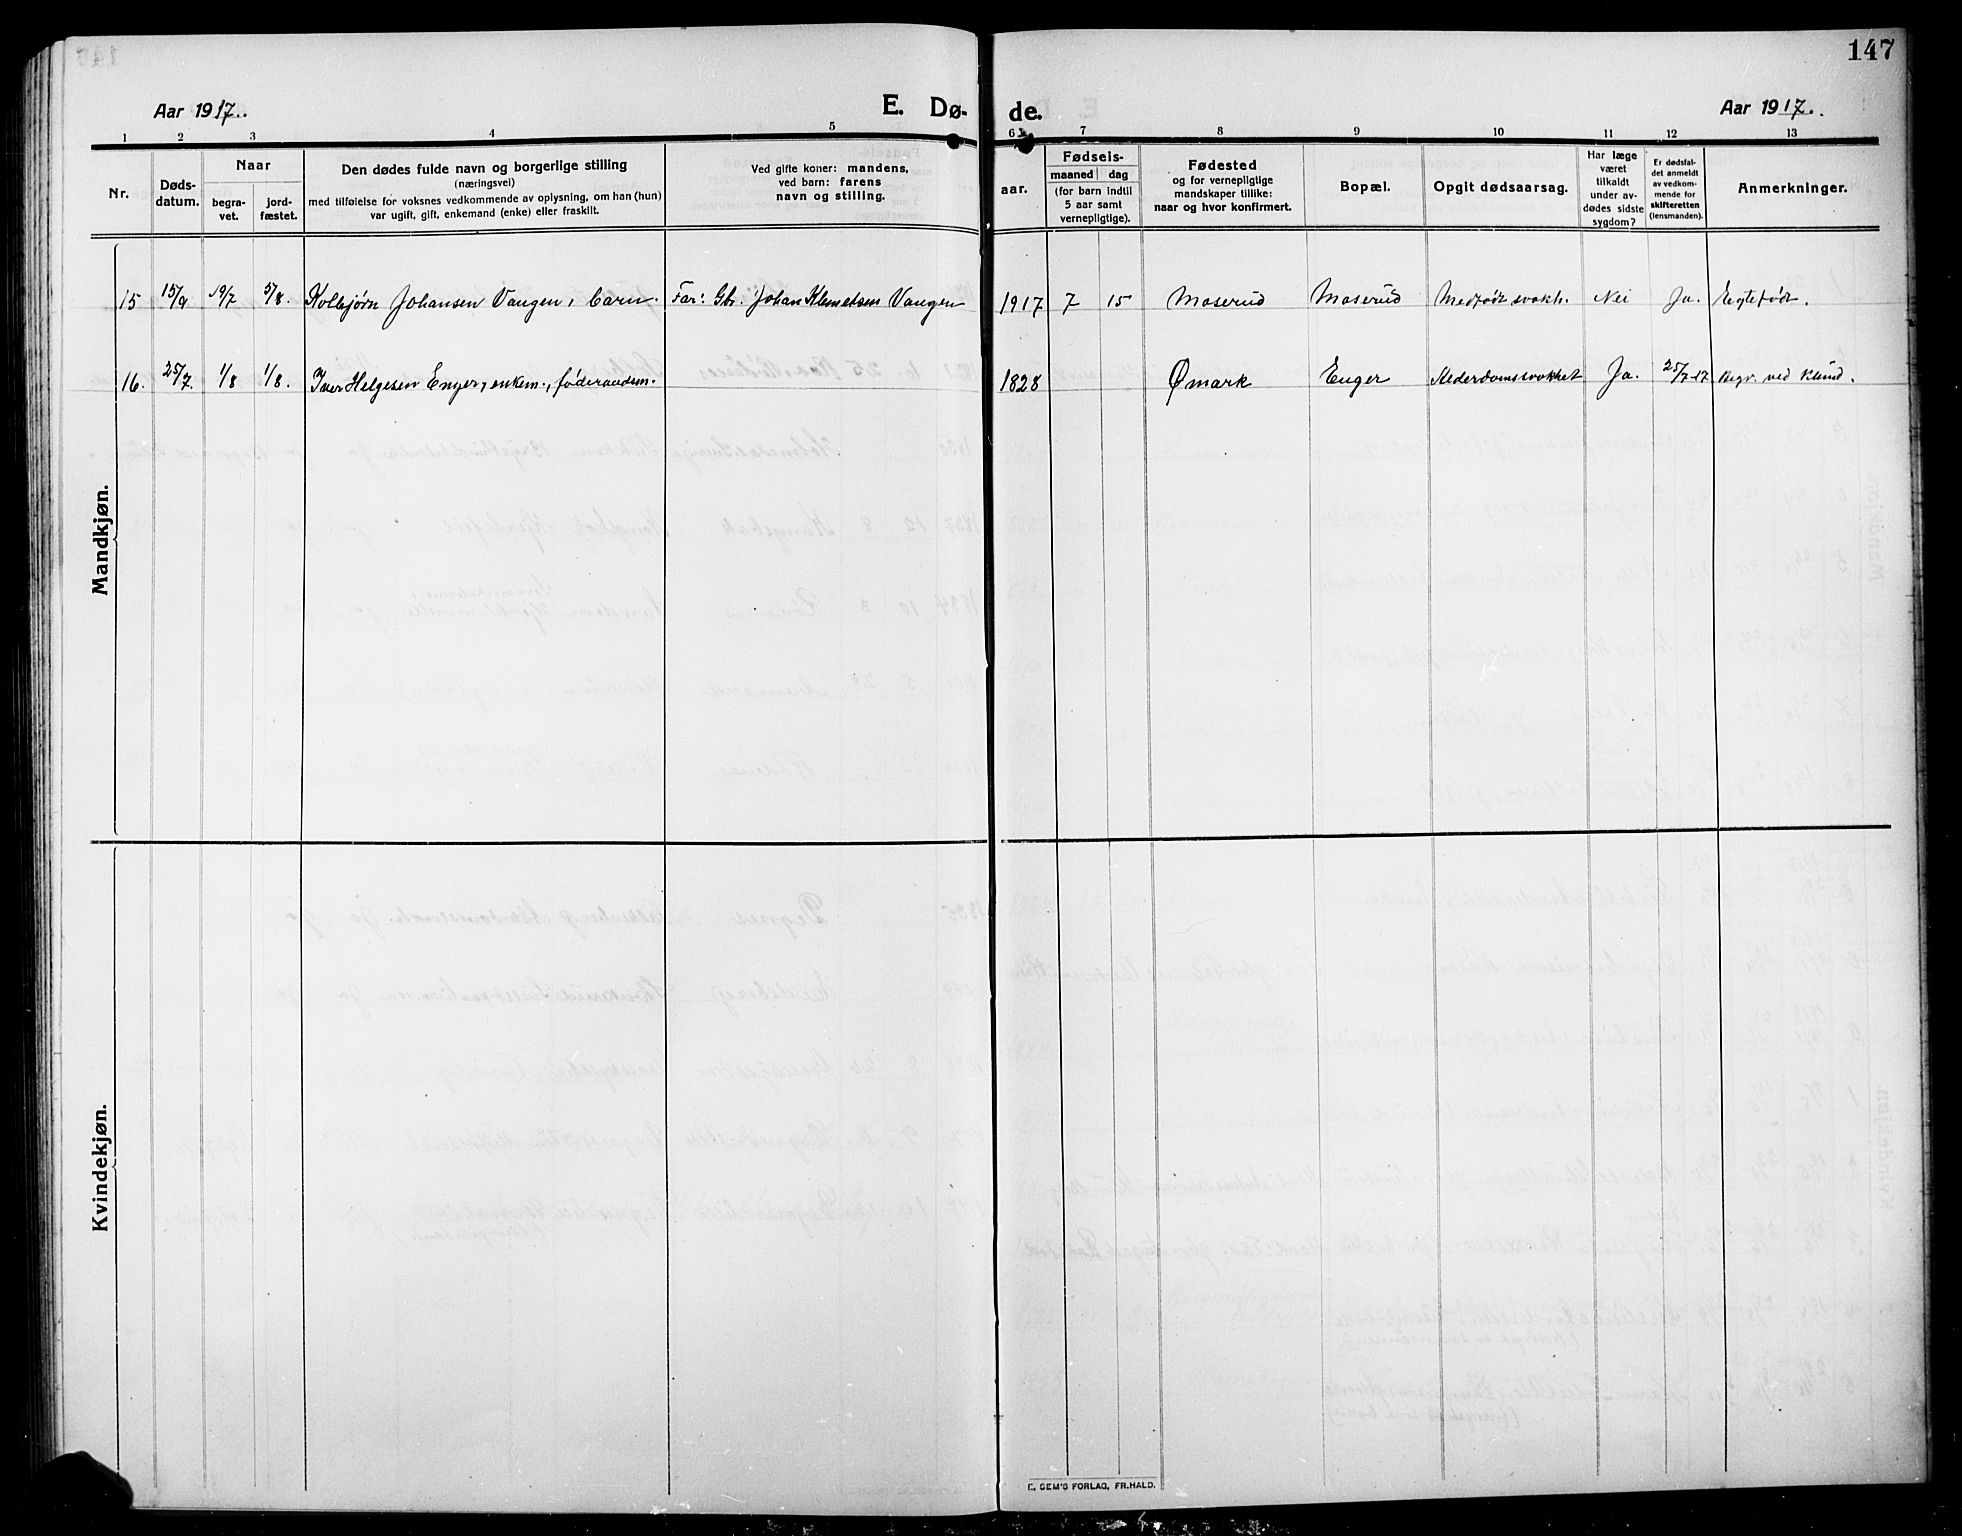 147
Aar 1917. E. Dø- de. Aar 1917.
1 2 3 4 5 6 7 8 9 10 11 12 13
Nr.
Døds-
datum.
Naar
begra-
vet.
jord-
fæstet.
Den dødes fulde navn og borgerlige stilling
(næringsvei)
med tilføielse for voksnes vedkommende av oplysning, om han (hun)
var ugift, gift, enkemand (enke) eller fraskilt.
Ved gifte koner: mandens,
ved barn: farens
navn og stilling.
aar.
Fødsels-
maaned dag
(for barn indtil
5 aar samt
vernepligtige).
Fødested
og for vernepligtige
mandskaper tillike:
naar og hvor konfirmert.
Bopæl.
Opgit dødsaarsag.
Har læge
været
tilkaldt
under av-
dødes sidste
sygdom?
Er dødsfal-
det anmeldt
av vedkom-
mende for
skifteretten
(lensmanden).
Anmerkninger.
Mandkjøn.
15 19/7 5/8. Kolbjørn Johansen Vangen, barn. Far: Gbr. Johan Klemetsen Vangen 1917 7 15 Moserud Moserud Medfødt svakh. Nei Ja. Egtefødt.
16. 25/7 1/8 1/8. Iver Helgesen Enger, enkem., føderaadsm. 1828 Ømark Enger Alderdomssvakhet Ja. 25/7-17 Begr. ved Klund.
Kvindekjøn.
E. SEM'S FORLAG, FR.HALD.